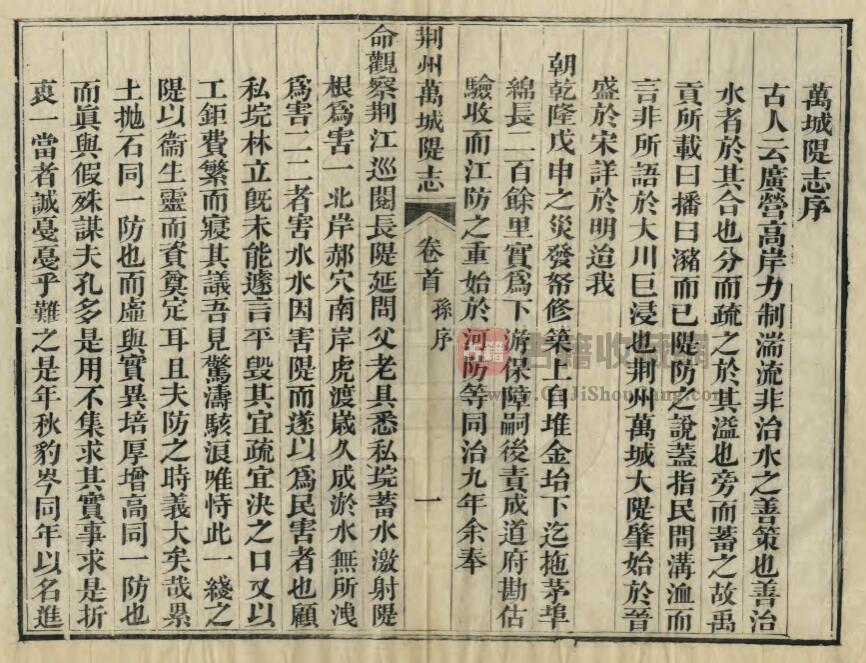 萬城隄志序
古人云廣營高岸力制湍流非治水之善策也善治
水者於其合也分而疏之於其溢也旁而蓄之故禹
貢所載曰播曰瀦而已隄防之說蓋指民間溝洫而
言非所語於大川巨浸也荆州萬城大隄肇始於晉
盛於宋詳於明迨我
朝乾隆戊申之災發帑修築上自堆金坮下迄拖茅埠
綿長二百餘里實爲下游保障嗣後責成道府勘估
驗收而江防之重始於河防等同治九年余奉
荆州萬城隄志 卷首 孫序 一
命觀察荆江巡閱長隄延問父老具悉私垸蓄水激射隄
根爲害一北岸郝穴南岸虎渡歲久成淤水無所洩
爲害二二者害水水因害隄而遂以爲民害者也顧
私垸林立旣未能遽言平毀其宜疏宜決之口又以
工鉅費繁而寢其議吾見驚濤駭浪唯恃此一綫之
隄以衞生靈而資奠定耳且夫防之時義大矣哉累
土拋石同一防也而虛與實異培厚增高同一防也
而眞與假殊謀夫孔多是用不集求其實事求是折
衷一當者誠戞戞乎難之是年秋豹岑同年以名進
书籍收藏網
www.GuJiShouCang.com